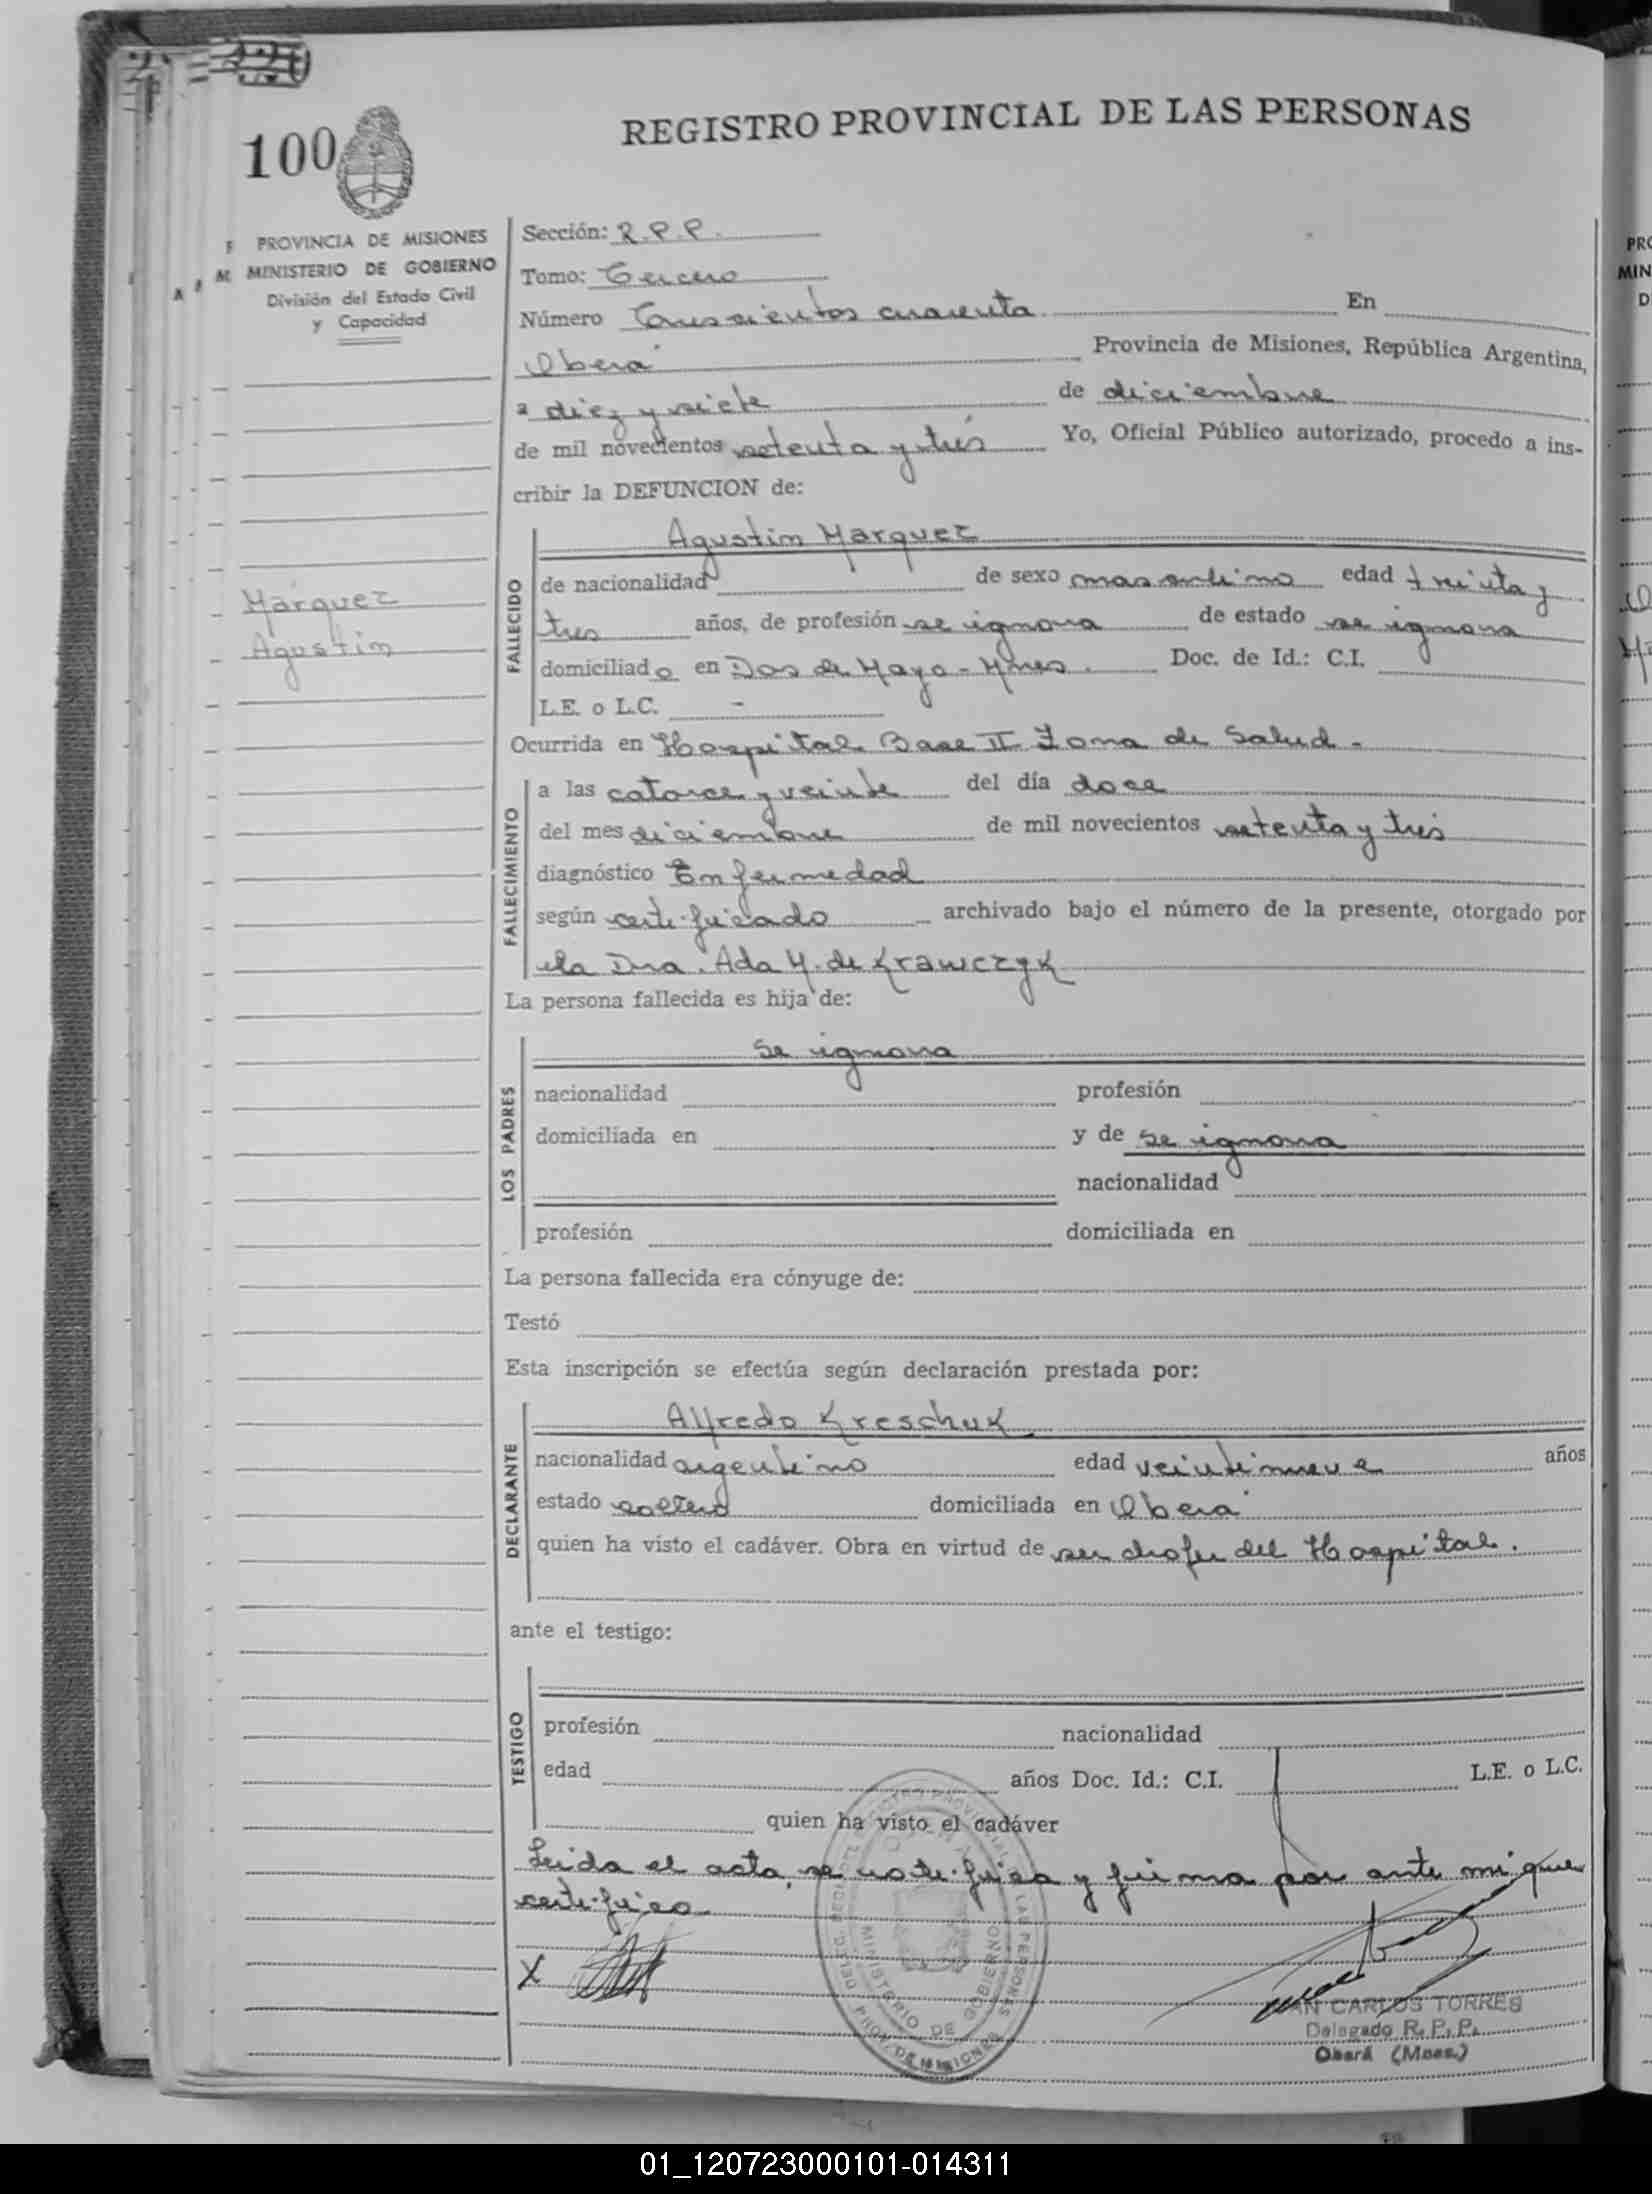 100
REGISTRO PROVINCIAL DE LAS PERSONAS
PROVINCIA DE MISIONES
MINISTERIO DE GOBIERNO
División del Estado Civil
y Capacidad
Márquez
Agustín
Sección: R.P.P.
Tomo: Tercero
Número Trescientos cuarenta En
Oberá Provincia de Misiones, República Argentina,
a diez y siete de diciembre
de mil novecientos setenta y tres Yo, Oficial Público autorizado, procedo a ins-
cribir la DEFUNCION de:
FALLECIDO
Agustín Márquez
de nacionalidad de sexo masculino edad treinta y
tres años, de profesión se ignora de estado se ignora
domiciliado en Dos de Mayo - Mnes. Doc. de Id.: C.I.
L.E. o L.C. -
Ocurrida en Hospital Base II Zona de Salud -
FALLECIMIENTO
a las catorce y veinte del día doce
del mes diciembre de mil novecientos setenta y tres
diagnóstico Enfermedad
según certificado archivado bajo el número de la presente, otorgado por
la Dra. Ada M. de Krawczyk
La persona fallecida es hija de:
LOS PADRES
Se ignora
nacionalidad profesión
domiciliada en y de Se ignora
nacionalidad
profesión domiciliada en
La persona fallecida era cónyuge de:
Testó
Esta inscripción se efectúa según declaración prestada por:
DECLARANTE
Alfredo Kreschuk
nacionalidad argentino edad veintinueve años
estado soltero domiciliada en Oberá
quien ha visto el cadáver. Obra en virtud de ser chofer del Hospital.
ante el testigo:
TESTIGO
profesión nacionalidad
edad años Doc. Id.: C.I. L.E. o L.C.
quien ha visto el cadáver
Leida el acta, se notifica y firma por ante mi que
certifico
X
MINISTERIO DE GOBIERNO
JUAN CARLOS TORRES
Delegado R.P.P.
Oberá (Mnes.)
01_120723000101-014311